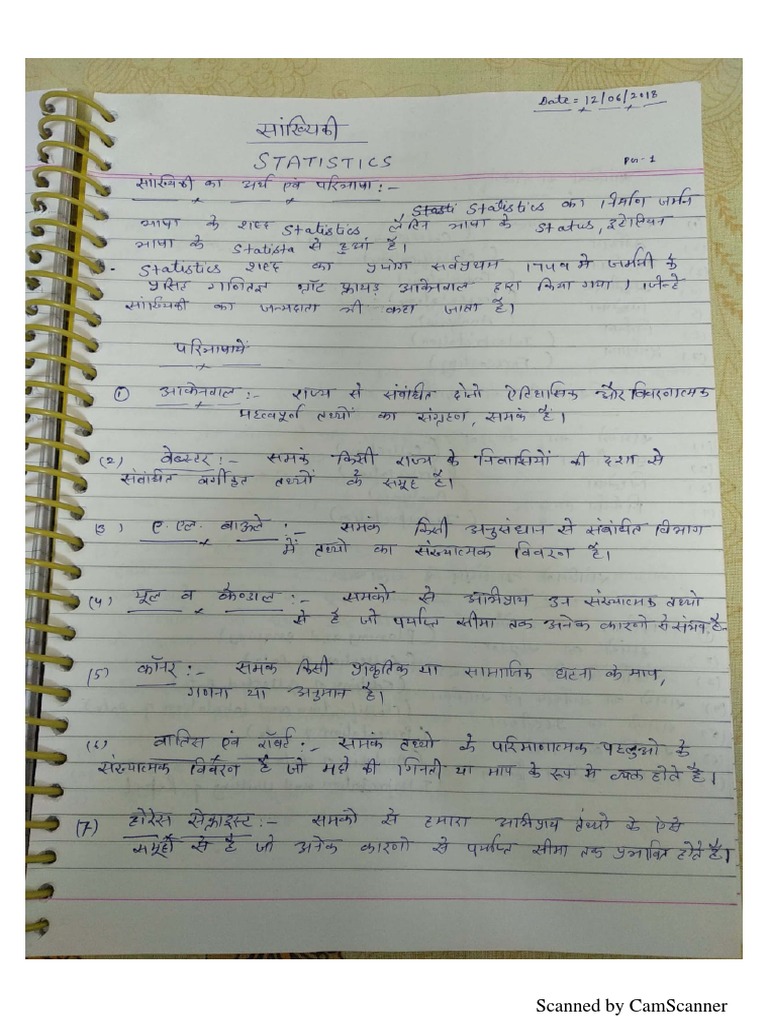 Date = 12/06/2018
सांख्यिकी
STATISTICS
सांख्यिकी का अर्थ एवं परिभाषा :-
Statistics का निर्माण जर्मन
भाषा के शब्द Statistics लैटिन भाषा के Status, इटेलियन
भाषा के Statista से हुआं है।
- Statistics शब्द का प्रयोग सर्वप्रथम 1749 में जर्मनी के
प्रसिद्ध गणितज्ञ गॉट फ्रायड आकेनवाल द्वारा किया गया। जिन्हे
सांख्यिकी का जन्मदाता भी कहा जाता है।
परिभाषायें
(1) आकेनवाल :- राज्य से संबंधित दोनो ऐतिहासिक और विवरणात्मक
महत्वपूर्ण तथ्यों का संग्रहण, समकं हैं।
(2) वेब्स्टर :- समकं किसी राज्य के निवासियों की दशा से
संबंधित वर्गीकृत तथ्यों के समूह है।
(3) ए. एल. बाऊले :- समकं किसी अनुसंधान से संबंधित विभाग
में तथ्यो का संख्यात्मक विवरण है।
(4) यूल व कैण्डाल :- समकों से अभिप्राय उन संख्यात्मक तथ्यो
से है जो पर्याप्त सीमा तक अनेक कारणो से संभव है-
(5) कॉनर :- समकं किसी प्राकृतिक या सामाजिक घटना के माप,
गणना या अनुमान है।
(6) वालिस एवं रॉबर्ट :- समकं तथ्यो के परिमाणात्मक पहलुओ के
संख्यात्मक विवरन है जो मदो की गिनती या माप के रूप मे व्यक्त होते है।
(7) होरेस सेक्राइस्ट :- समको से हमारा अभिप्राय तथ्यो के ऐसे
समूहों से है जो अनेक कारणो से पर्याप्त सीमा तक प्रभावित होते है।
Scanned by CamScanner